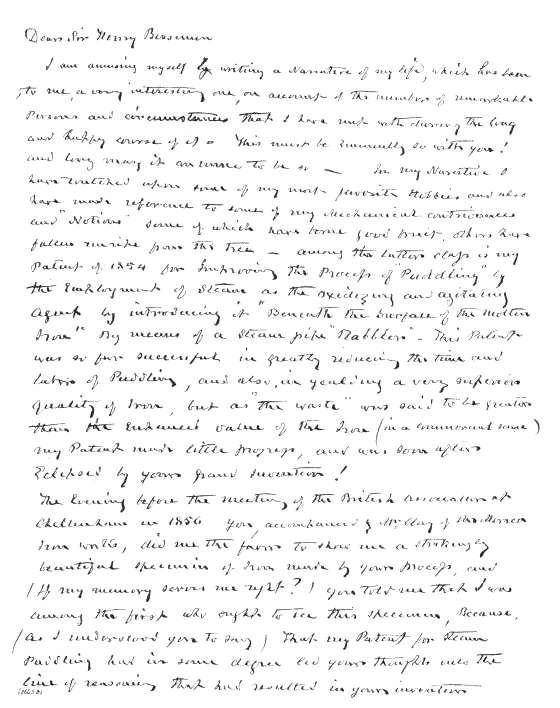 Dear Sir Henry Bessemer
I am amusing myself by writing a Narrative of my life, which has been
to me, a very interesting one, on account of the number of remarkable
Persons and circumstances that I have met with during the long
and happy course of it. This must be Eminently so with you!
and long may it continue to be so — In my Narrative I
have touched upon some of my most favorite Hobbies and also
have made reference to some of my Mechanical contrivances
and "Notions" some of which have borne good fruit, others have
fallen unripe from the tree — among the latter class is my
Patent of 1854 for Improving "the Process of "Puddling" by
the Employment of Steam as the oxidizing and agitating
Agent by introducing it "Beneath the Surface of the Molten
Iron" By means of a Steam pipe "Rabbler" - This Patent
was so far successful in greatly reducing the time and
labor of Puddling, and also, in yealding a very superior
quality of Iron, but as "the waste" was said to be greater
than the Enhanced value of the Iron (in a commercial sense)
my Patent made little progress, and was soon after
Eclipsed by your grand Invention!
The Evening before the meeting of the British Association at
Cheltenham in 1856 you, accompanied by Mr. Clay of the Mersea
Iron works, did me the favor to show me a strikingly
beautiful specimen of Iron made by your Process, and
(If my memory serves me right?) you told me that I was
among the first who ought to see this specimen, Because,
(as I understood you to say) that my Patent for Steam
Puddling had in some degree led your thoughts into the
line of reasoning that had resulted in your invention